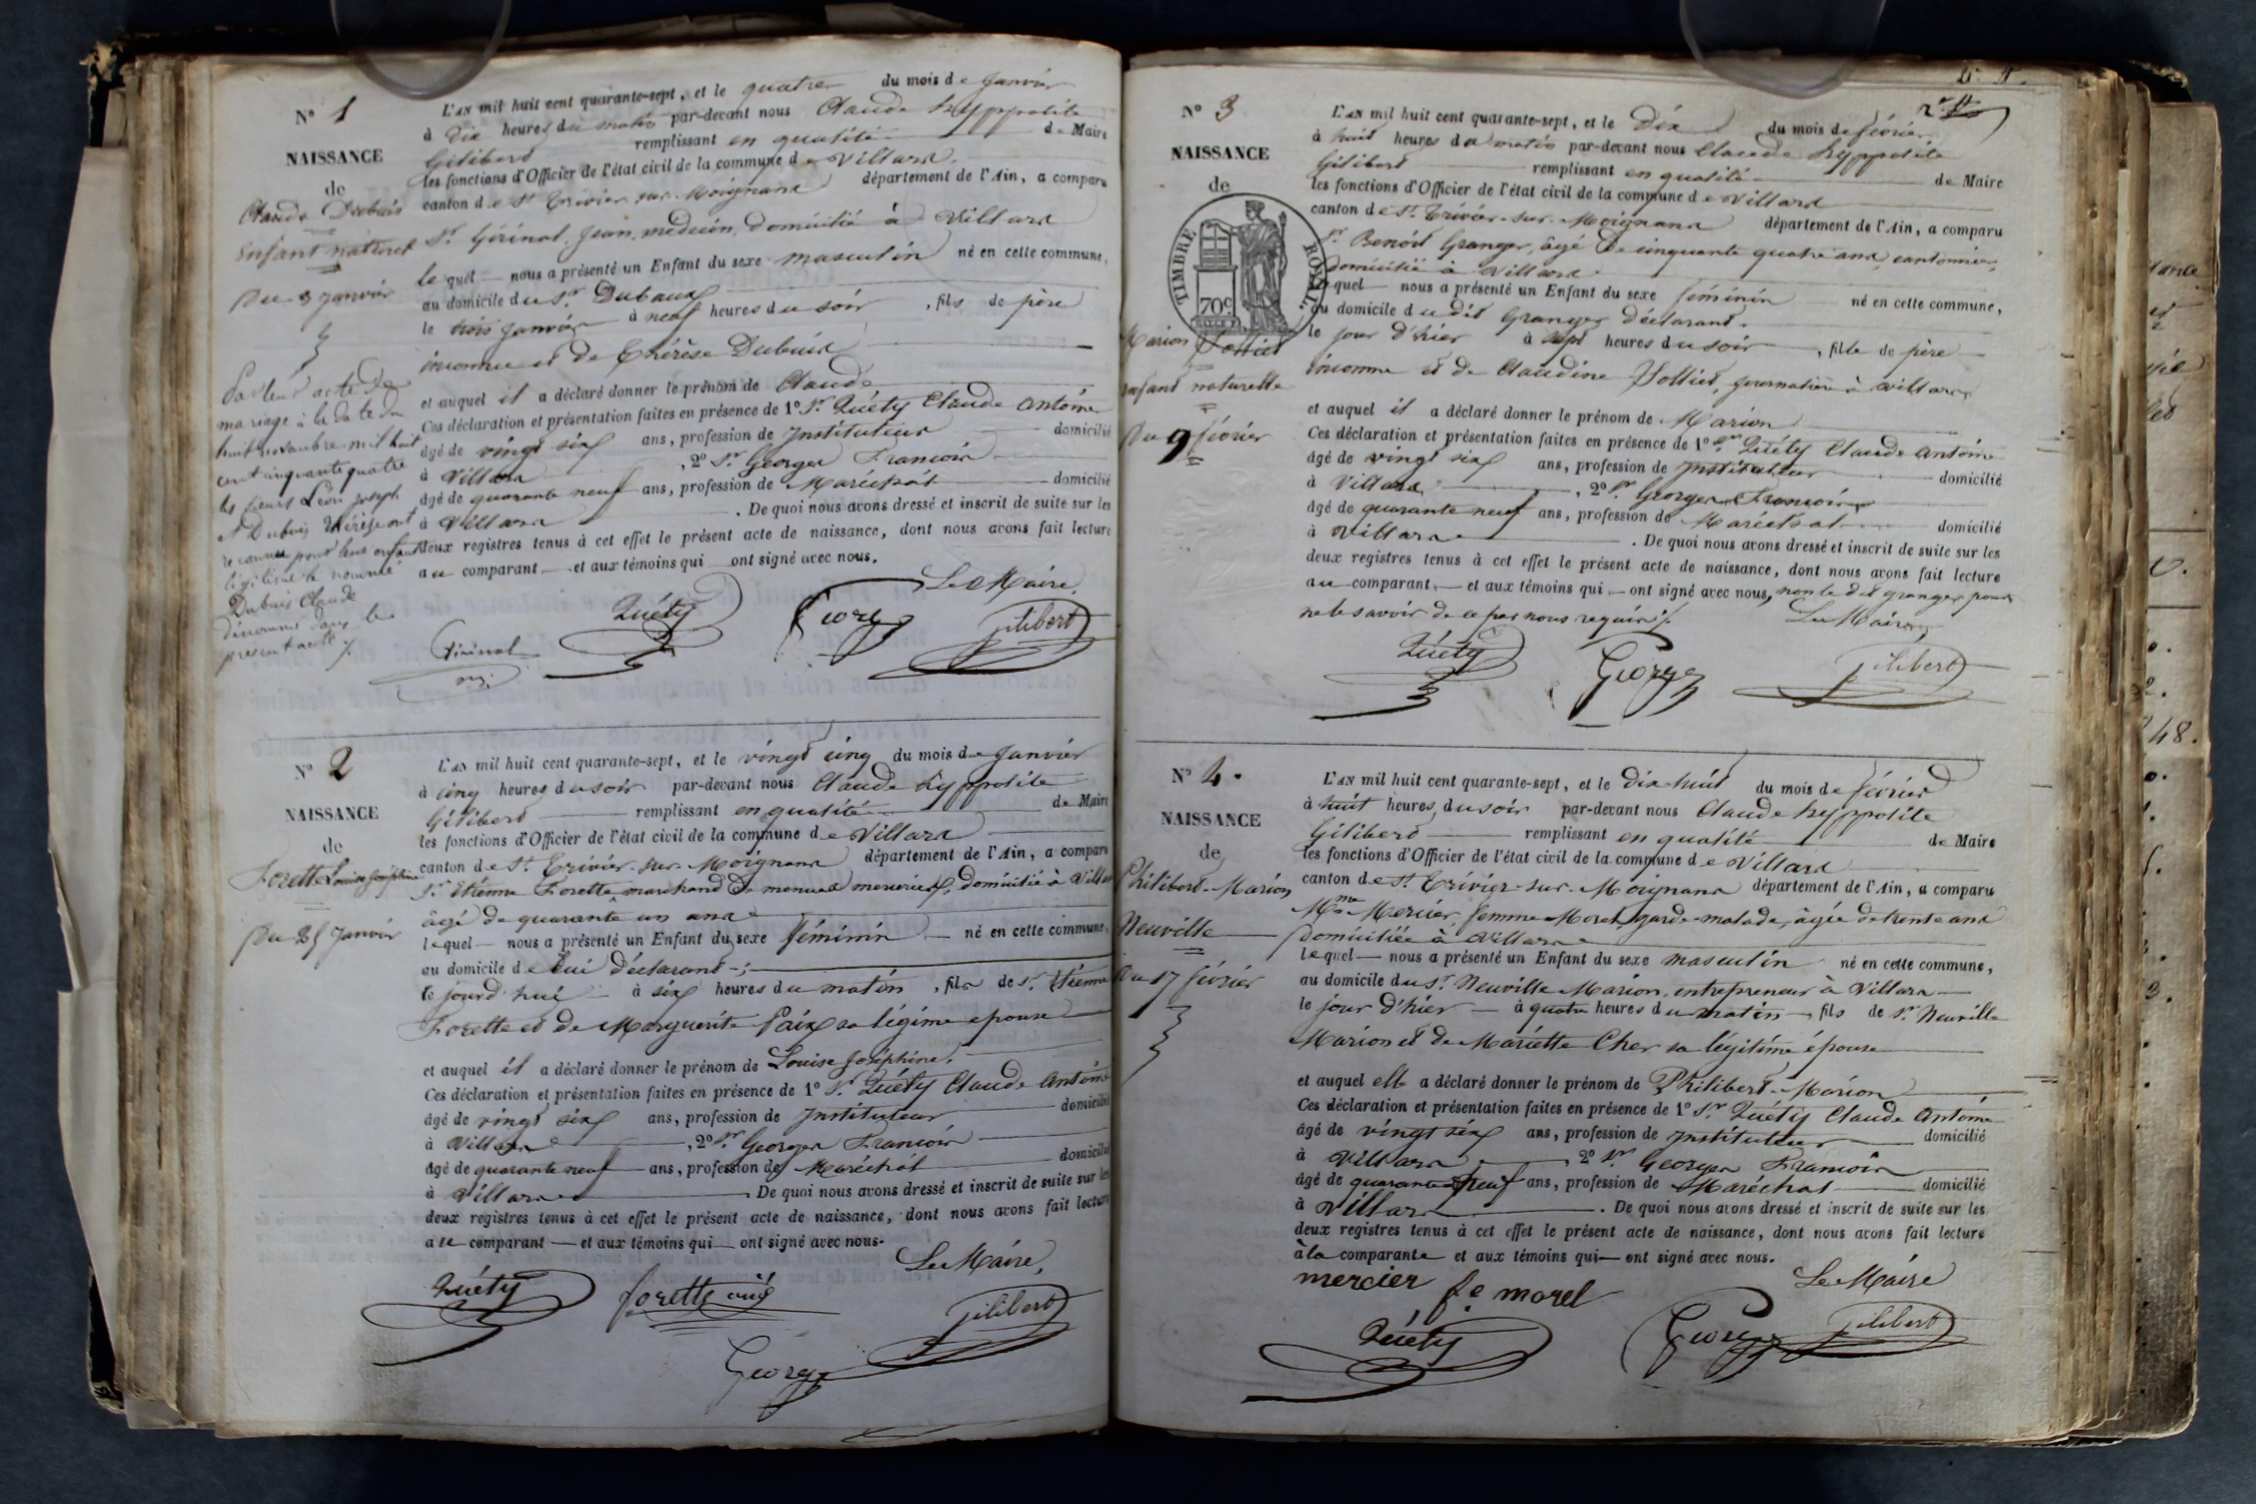 N° 1
NAISSANCE
de
Claude Dubuis
Enfant naturel
Du 3 Janvier
Par leur acte de
mariage à la date du
huit novembre mil huit
cent cinquante quatre
les sieurs Léon Joseph
et Dubuis Thérèse ont
reconnu pour leur enfant
légitime le nommé
Dubuis Claude
dénommé dans le
présent acte ./.
L'AN mil huit cent quarante-sept, et le quatre du mois de Janvier
à Dix heures du matin par-devant nous Claude hyppolite
Gilibert remplissant en qualité de Maire
les fonctions d'Officier de l'état civil de la commune de Villars
canton de St Trivier-sur-Moignans département de l'Ain, a comparu
Sr Gérinal, Jean, médecin, domicilié à Villars
lequel nous a présenté un Enfant du sexe masculin né en cette commune,
au domicile du Sr Dubaux
le trois Janvier à neuf heures du soir, fils de père
inconnu et de Thérèse Dubuis
et auquel il a déclaré donner le prénom de Claude
Ces déclaration et présentation faites en présence de 1° Sr Quéty Claude Antoine
âgé de vingt six ans, profession de Instituteur domicilié
à Villars, 2° Sr Georges Francois
âgé de quarante neuf ans, profession de Maréchal domicilié
à Villars. De quoi nous avons dressé et inscrit de suite sur les
deux registres tenus à cet effet le présent acte de naissance, dont nous avons fait lecture
au comparant et aux témoins qui ont signé avec nous.
Le Maire,
Quéty George Gilibert
N° 2
NAISSANCE
de
Forette Louise Joséphine
Du 25 Janvier
L'AN mil huit cent quarante-sept, et le vingt cinq du mois de Janvier
à cinq heures du soir par-devant nous Claude hyppolite
Gilibert remplissant en qualité de Maire
les fonctions d'Officier de l'état civil de la commune de Villars
canton de St Trivier-sur-Moignans département de l'Ain, a comparu
Sr Etienne Forette marchand de menues merceries, domicilié à Villars
âgé de quarante un ans
lequel nous a présenté un Enfant du sexe féminin né en cette commune,
au domicile de lui déclarant;
le jourd'hui à six heures du matin, fils de Sr Etienne
Forette et de Marguerite Paix sa légime epouse
et auquel il a déclaré donner le prénom de Louise Joséphine.
Ces déclaration et présentation faites en présence de 1° Sr Quéty Claude Antoine
âgé de vingt six ans, profession de Instituteur domicilié
à Villars, 2° Sr Georges Francois
âgé de quarante neuf ans, profession de Maréchal domicilié
à Villars De quoi nous avons dressé et inscrit de suite sur les
deux registres tenus à cet effet le présent acte de naissance, dont nous avons fait lecture
au comparant et aux témoins qui ont signé avec nous.
Le Maire,
Quéty forette Gilibert
George
N° 3
NAISSANCE
de
TIMBRE ROYAL
70c
Marion Jolliet
enfant naturelle
Du 9 février
L'AN mil huit cent quarante-sept, et le Dix du mois de février
à huit heures du matin par-devant nous Claude hyppolite
Gilibert remplissant en qualité de Maire
les fonctions d'Officier de l'état civil de la commune de Villars
canton de St Trivier-sur-Moignans département de l'Ain, a comparu
Sr Benoit Granger, âgé de cinquante quatre ans, cantonnier,
domicilié à Villars
lequel nous a présenté un Enfant du sexe féminin né en cette commune,
au domicile du dit Granger déclarant.
le jour d'hier à sept heures du soir, fille de père
inconnu et de Claudine Jolliet, journalière à Villars
et auquel il a déclaré donner le prénom de Marion
Ces déclaration et présentation faites en présence de 1° Sr Quéty Claude Antoine
âgé de vingt six ans, profession de Instituteur domicilié
à Villars, 2° Sr Georges Francois
âgé de quarante neuf ans, profession de Maréchal domicilié
à Villars. De quoi nous avons dressé et inscrit de suite sur les
deux registres tenus à cet effet le présent acte de naissance, dont nous avons fait lecture
au comparant, et aux témoins qui ont signé avec nous, non le dit granger pour
ne le savoir de ce par nous requis ./.
Le Maire,
Quéty George Gilibert
N° 4.
NAISSANCE
de
Philibert-Marion
Neuville
Du 17 février
L'AN mil huit cent quarante-sept, et le dix huit du mois de février
à huit heures, du soir par-devant nous Claude hyppolite
Gilibert remplissant en qualité de Maire
les fonctions d'Officier de l'état civil de la commune de Villars
canton de St Trivier-sur-Moignans département de l'Ain, a comparu
Mme Mercier, femme Morel, garde-malade, âgée de trente ans
domiciliée à Villars
lequel nous a présenté un Enfant du sexe masculin né en cette commune,
au domicile du Sr Neuville Marion, entrepreneur à Villars
le jour d'hier à quatre heures du matin, fils de Sr Neuville
Marion et de Mariette Cher sa légitime épouse
et auquel elle a déclaré donner le prénom de Philibert-Marion
Ces déclaration et présentation faites en présence de 1° Sr Quéty Claude Antoine
âgé de vingt six ans, profession de Instituteur domicilié
à Villars, 2° Sr Georges Francois
âgé de quarante neuf ans, profession de Maréchal domicilié
à Villars. De quoi nous avons dressé et inscrit de suite sur les
deux registres tenus à cet effet le présent acte de naissance, dont nous avons fait lecture
à la comparante et aux témoins qui ont signé avec nous.
mercier fe morel Le Maire
Quéty George Gilibert
48.